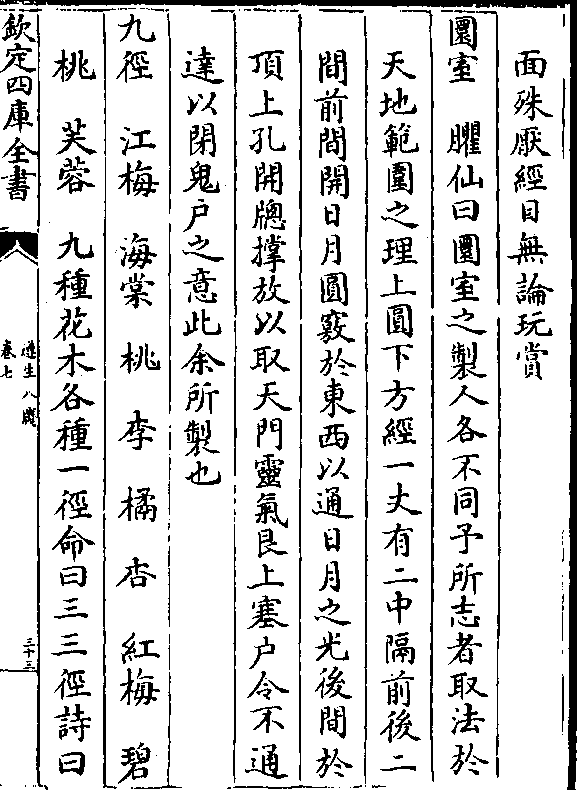 面殊厭經目無論玩賞
圜室　臞仙曰圜室之製人各不同予所志者取法於
天地範圍之理上圓下方經一丈有二中隔前後二
間前間開日月圓竅於東西以通日月之光後間於
頂上孔開牕撑放以取天門靈氣艮上塞户令不通
達以閉鬼户之意此余所製也
九徑　江梅　海棠　桃　李　橘　杏　紅梅　碧
桃　芙蓉　九種花木各種一徑命曰三三徑詩曰
欽定四庫全書
遵生八牋
卷七
三十三